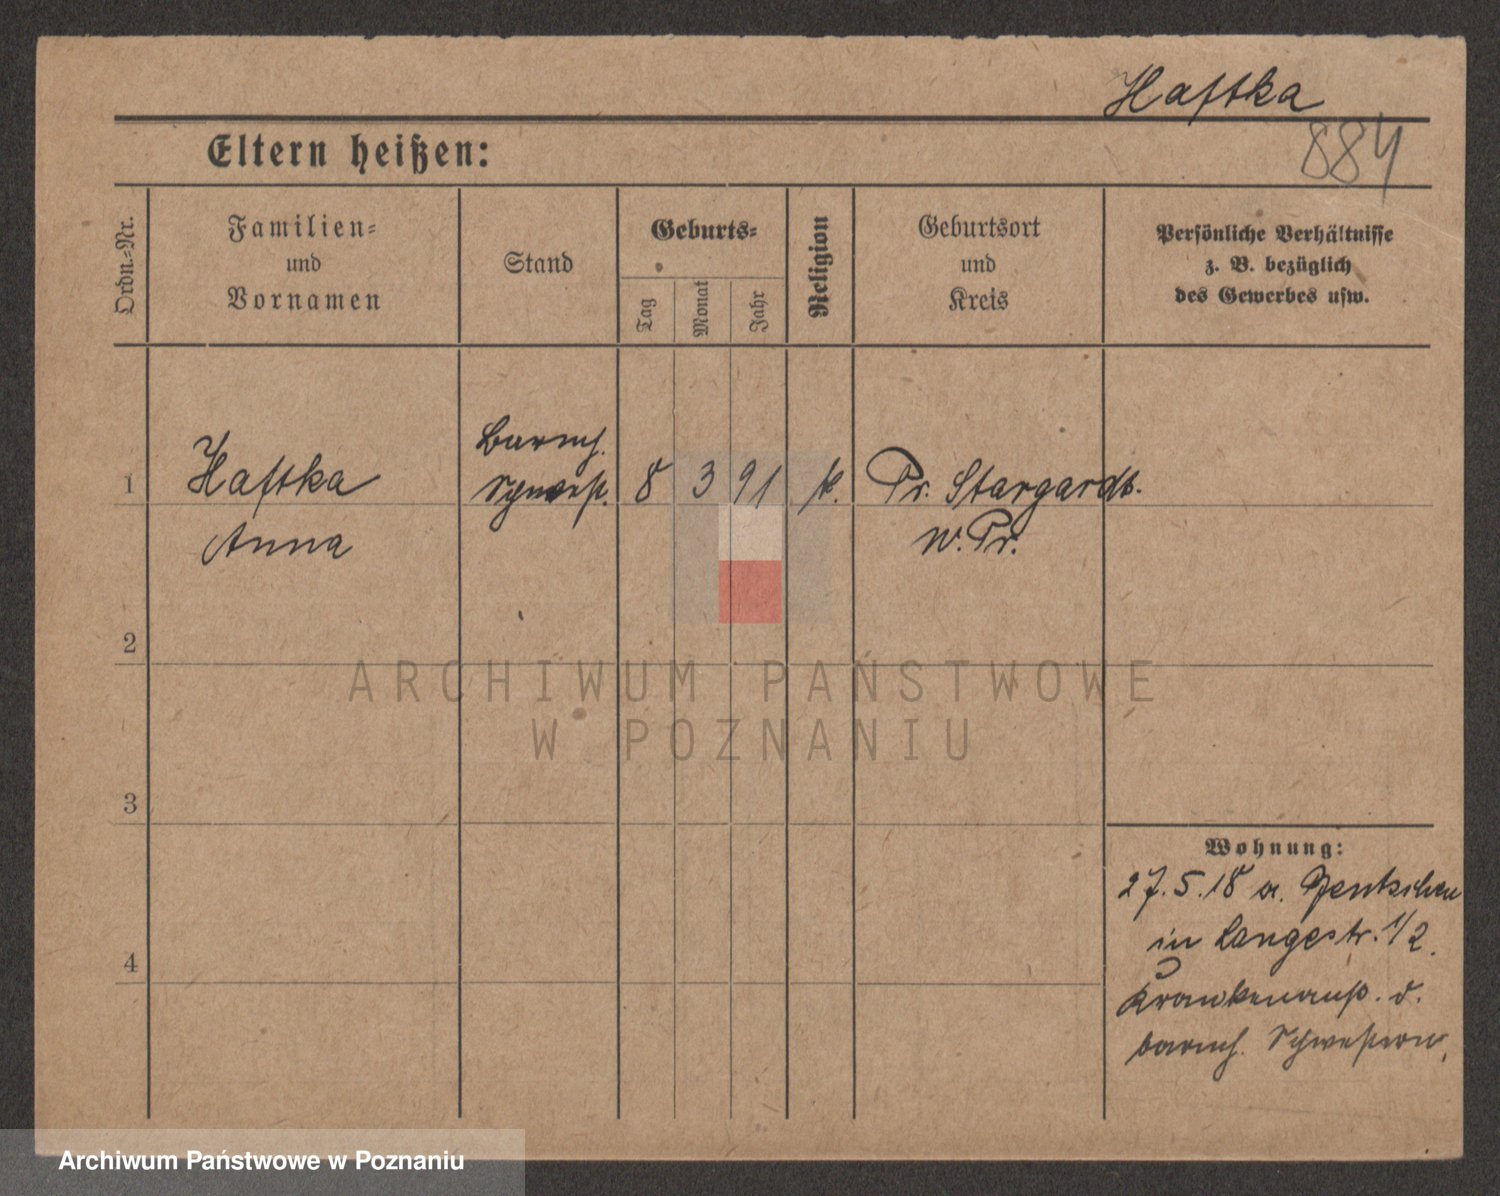 Haftka
884
Eltern heißen:
Ordn.-Nr.
Familien-
und
Vornamen
Stand
Geburts-
Tag
Monat
Jahr
Religion
Geburtsort
und
Kreis
Persönliche Verhältnisse
z. B. bezüglich
des Gewerbes usw.
barmh.
1 Haftka Schwest. 8 3 91 k. Pr. Stargardt.
Anna W. Pr.
2
3
4
Wohnung:
27.5.18 a. Bentschen
in Langestr. 1/2.
Krankenanst. d.
barmh. Schwestern.
ARCHIWUM PAŃSTWOWE
W POZNANIU
Archiwum Państwowe w Poznaniu